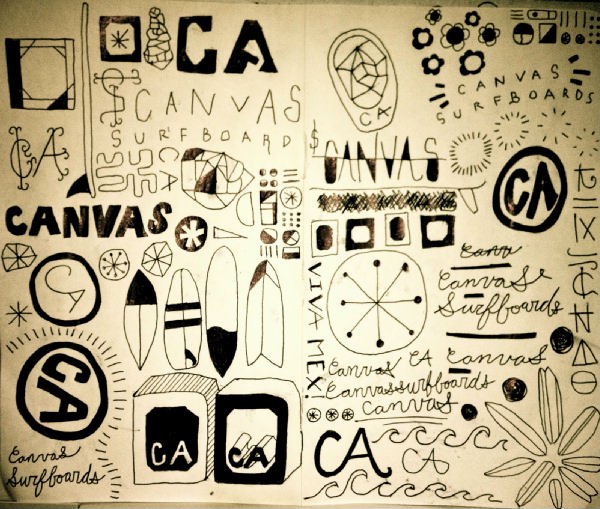 CA
CANVAS
SURFBOARD
CA
CA
CANVAS
CA
CA
Canvas
Surfboards
CA
CA
CA
CANVAS
SURFBOARDS
CANVAS
CA
VIVA MEX!
Canv
Canvas
Surfboards
Canvas
Canvas CA
Canvassurfboards
Canvas
CA
CA